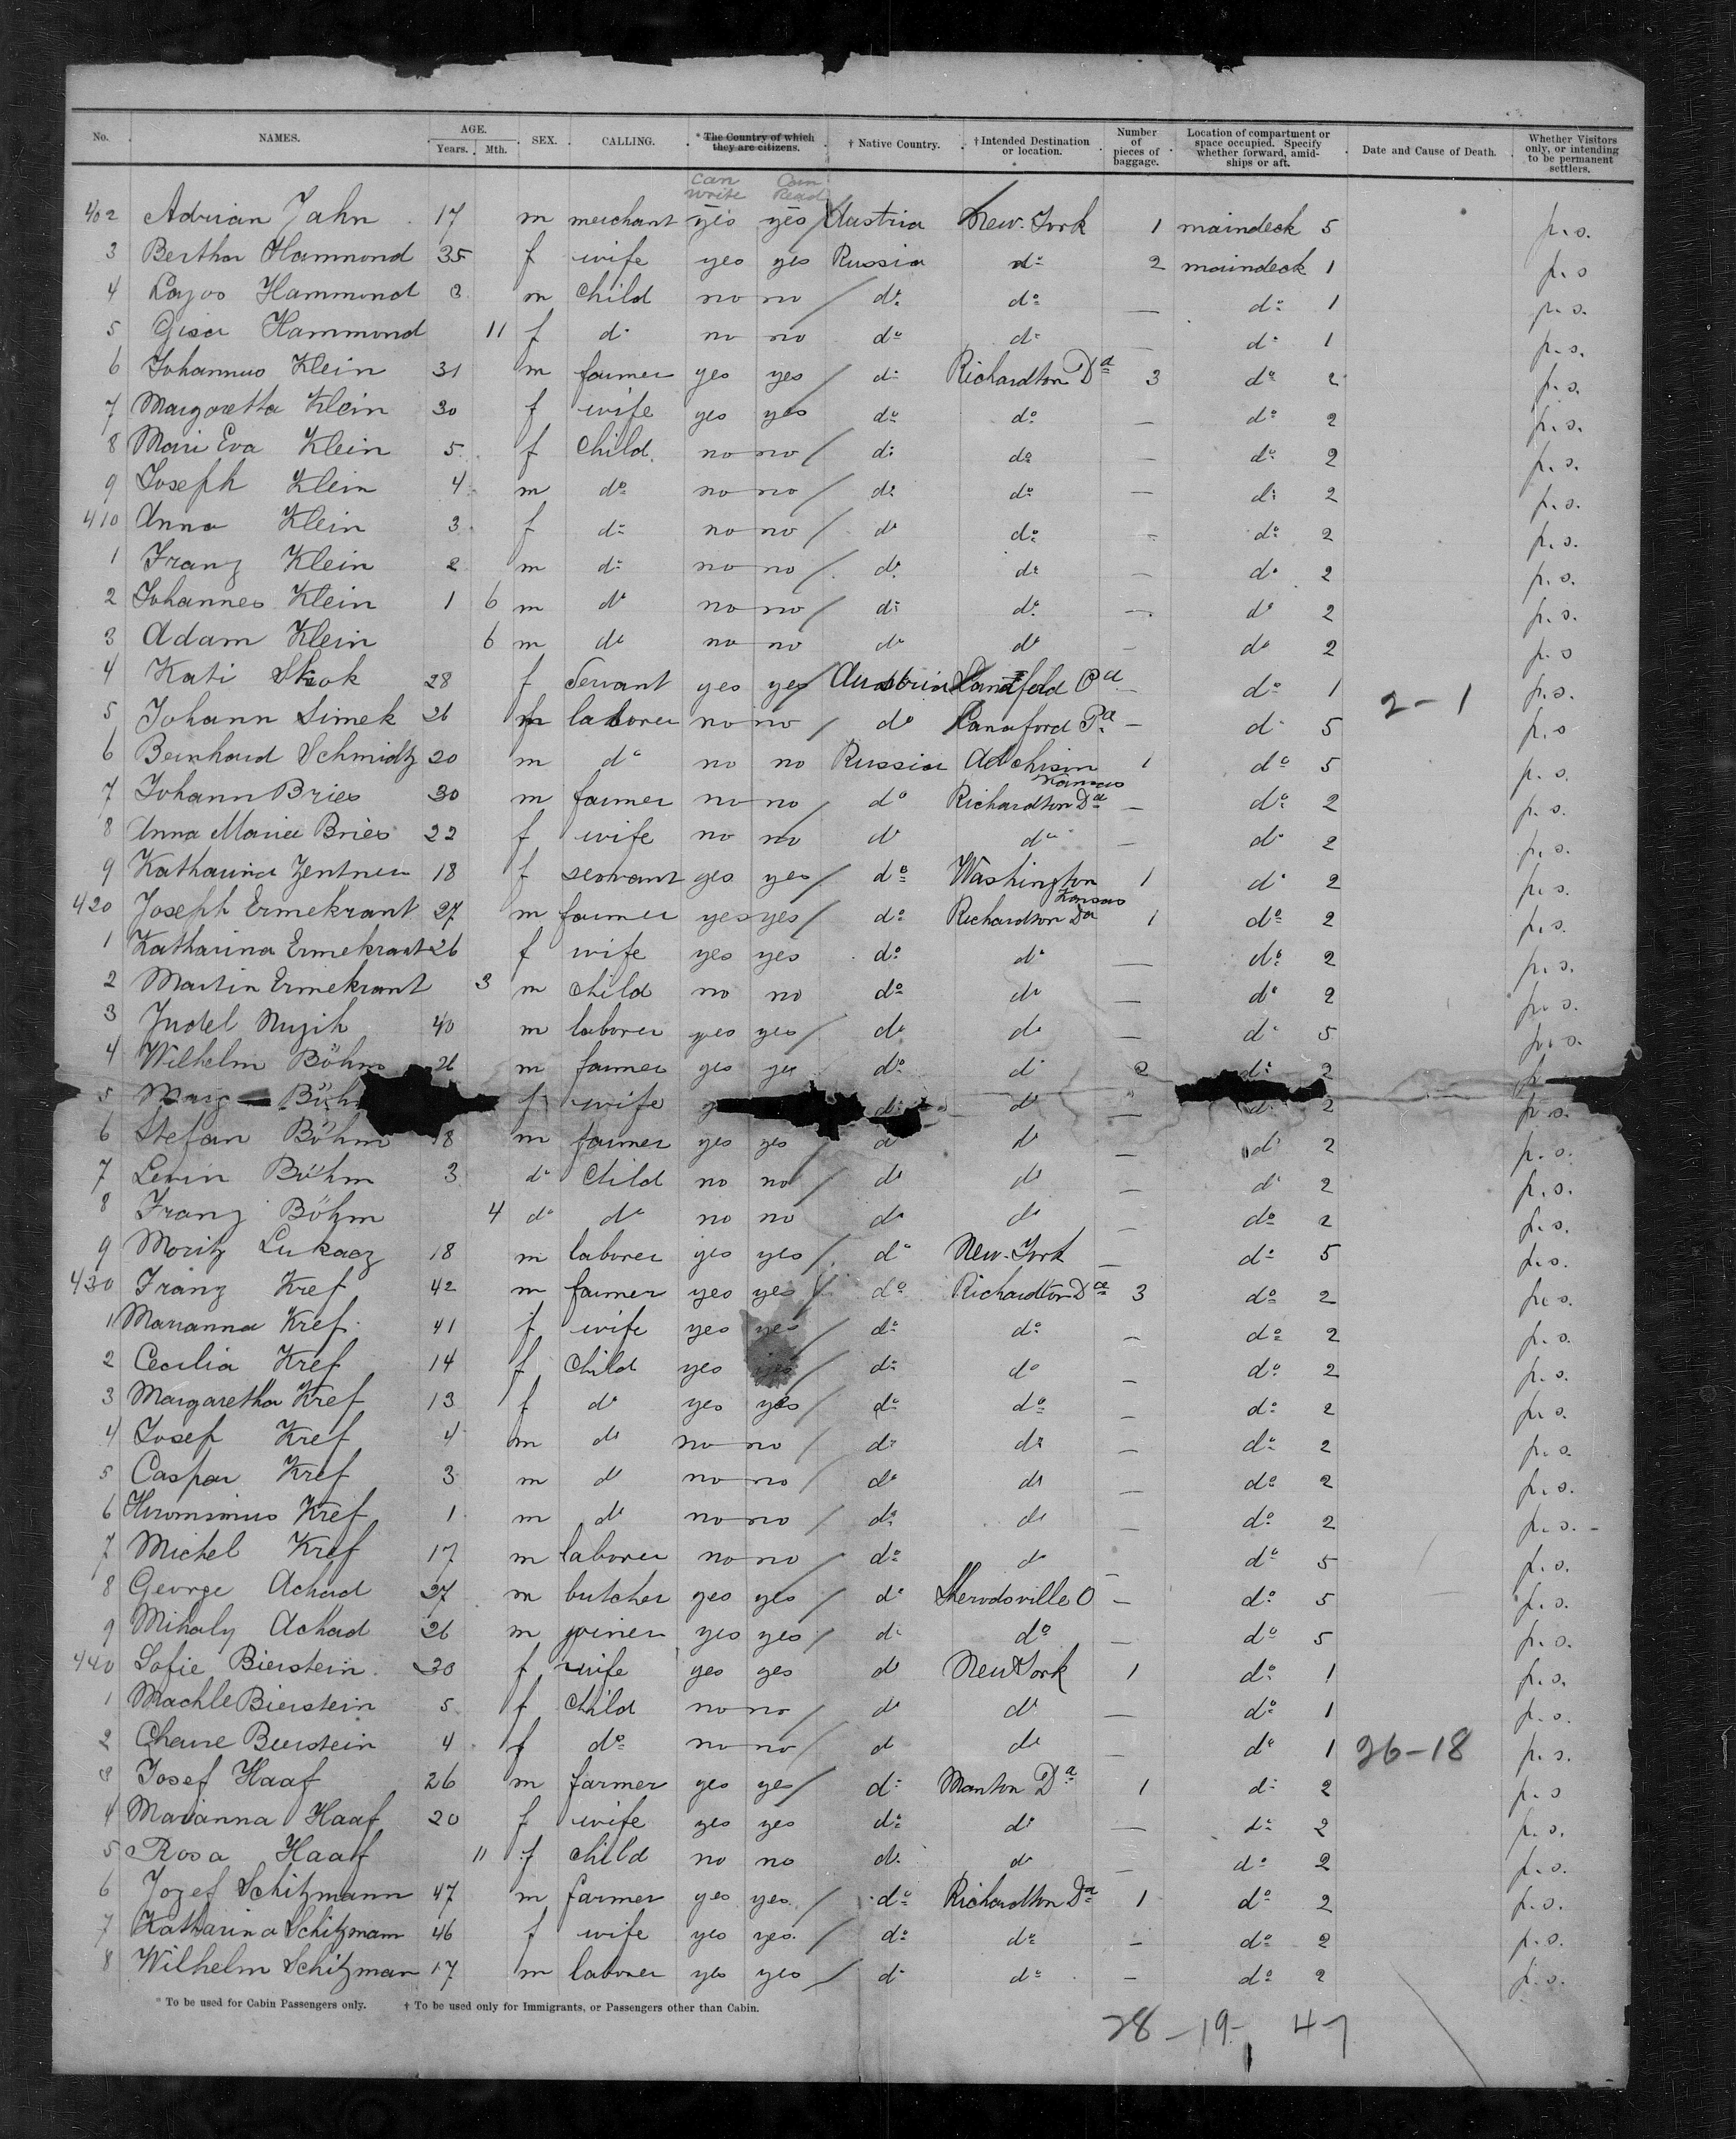 No. NAMES. AGE. Years. Mth. SEX. CALLING. * The Country of which they are citizens. † Native Country. † Intended Destination or location. Number of pieces of baggage. Location of compartment or space occupied. Specify whether forward, amidships or aft. Date and Cause of Death. Whether Visitors only, or intending to be permanent settlers.
can write Can Read
402 Adrian Jahn 17 m merchant yes yes / Austria New-York 1 maindeck 5 p.s.
3 Bertha Hammond 35 f wife yes yes Russia do 2 maindeck 1 p.s
4 Lajos Hammond m child no no / do do — do 1 p.s.
5 Gisa Hammond 11 f do no no do do — do 1 p.s.
6 Johannus Klein 31 m farmer yes yes do Richardton Da 3 do 2 p.s.
7 Margaretta Klein 30 f wife yes yes do do — do 2 p.s.
8 Mari Eva Klein 5 f child no no / do do — do 2 p.s.
9 Joseph Klein 4 m do no no / do do — do 2 p.s.
410 Anna Klein 3 f do no no / do do - do 2 p.s.
1 Franz Klein 2 m do no no / do do — do 2 p.s.
2 Johannes Klein 1 6 m do no no / do do — do 2 p.s.
3 Adam Klein 6 m do no no do do — do 2 p.s
4 Kati 28 f Servant yes yes / Austria Pa — do 1 2-1 p.s.
5 Johann Simek 26 m laborer no no / do Pa — do 5 p.s
6 Bernhard Schmidtz 20 m do no no Russia Adchisin Kansas 1 do 5 p.s.
7 Johann Bries 30 m farmer no no / do Richardton Da — do 2 p.s.
8 Anna Maria Bries 22 f wife no no do do — do 2 p.s.
9 Katharina Zentner 18 f servant yes yes / do Washington Kansas 1 do 2 p.s.
420 Joseph Ermekrant 27 m farmer yes yes / do Richardton Da 1 do 2 p.s.
1 Katharina Ermekrant 26 f wife yes yes do do — do 2 p.s.
2 Martin Ermekrant 3 m child no no do do — do 2 p.s.
3 Judel 40 m laborer yes yes / do do — do 5 p.s.
4 Wilhelm Böhm 26 m farmer yes yes do do 2 do 2 p
5 Marg Böh f wife y do do — d 2 p.s.
6 Stefan Böhm 18 m farmer yes yes do do — do 2 p.s.
7 Levin Böhm 3 do child no no / do do — do 2 p.s.
8 Franz Böhm 4 do do no no do do — do 2 p.s.
9 Moritz Lukacz 18 m laborer yes yes / do New-York — do 5 p.s.
430 Franz Kref 42 m farmer yes yes / do Richardton Da 3 do 2 p.s.
1 Marianna Kref 41 f wife yes yes / do do — do 2 p.s.
2 Cecilia Kref 14 f child yes yes / do do — do 2 p.s.
3 Margaretha Kref 13 f do yes yes do do — do 2 p.s.
4 Josef Kref 4 m do no no / do do — do 2 p.s.
5 Caspar Kref 3 m do no no / do do — do 2 p.s.
6 Hironimus Kref 1 m do no no / do do — do 2 p.s.
7 Michel Kref 17 m laborer no no / do do — do 5 p.s.
8 George Achad 27 m butcher yes yes / do Sherodsville O — do 5 p.s.
9 Mihaly Achad 26 m joiner yes yes / do do — do 5 p.s.
440 Sofie Bierstein 30 f wife yes yes do New York 1 do 1 p.s.
1 Machle Bierstein 5 f child no no / do do — do 1 p.s.
2 Bierstein 4 f do no no / do do — do 1 26-18 p.s.
3 Josef Haaf 26 m farmer yes yes / do Manton Da 1 do 2 p.s
4 Marianna Haaf 20 f wife yes yes do do — do 2 p.s.
5 Rosa Haaf 11 f child no no do do — do 2 p.s.
6 Jozef Schitzmann 47 m farmer yes yes / do Richardton Da 1 do 2 p.s.
7 Katharina Schitzmann 46 f wife yes yes / do do — do 2 p.s.
8 Wilhelm Schitzman 17 m laborer yes yes / do do — do 2 p.s.
* To be used for Cabin Passengers only. † To be used only for Immigrants, or Passengers other than Cabin.
28-19- 47